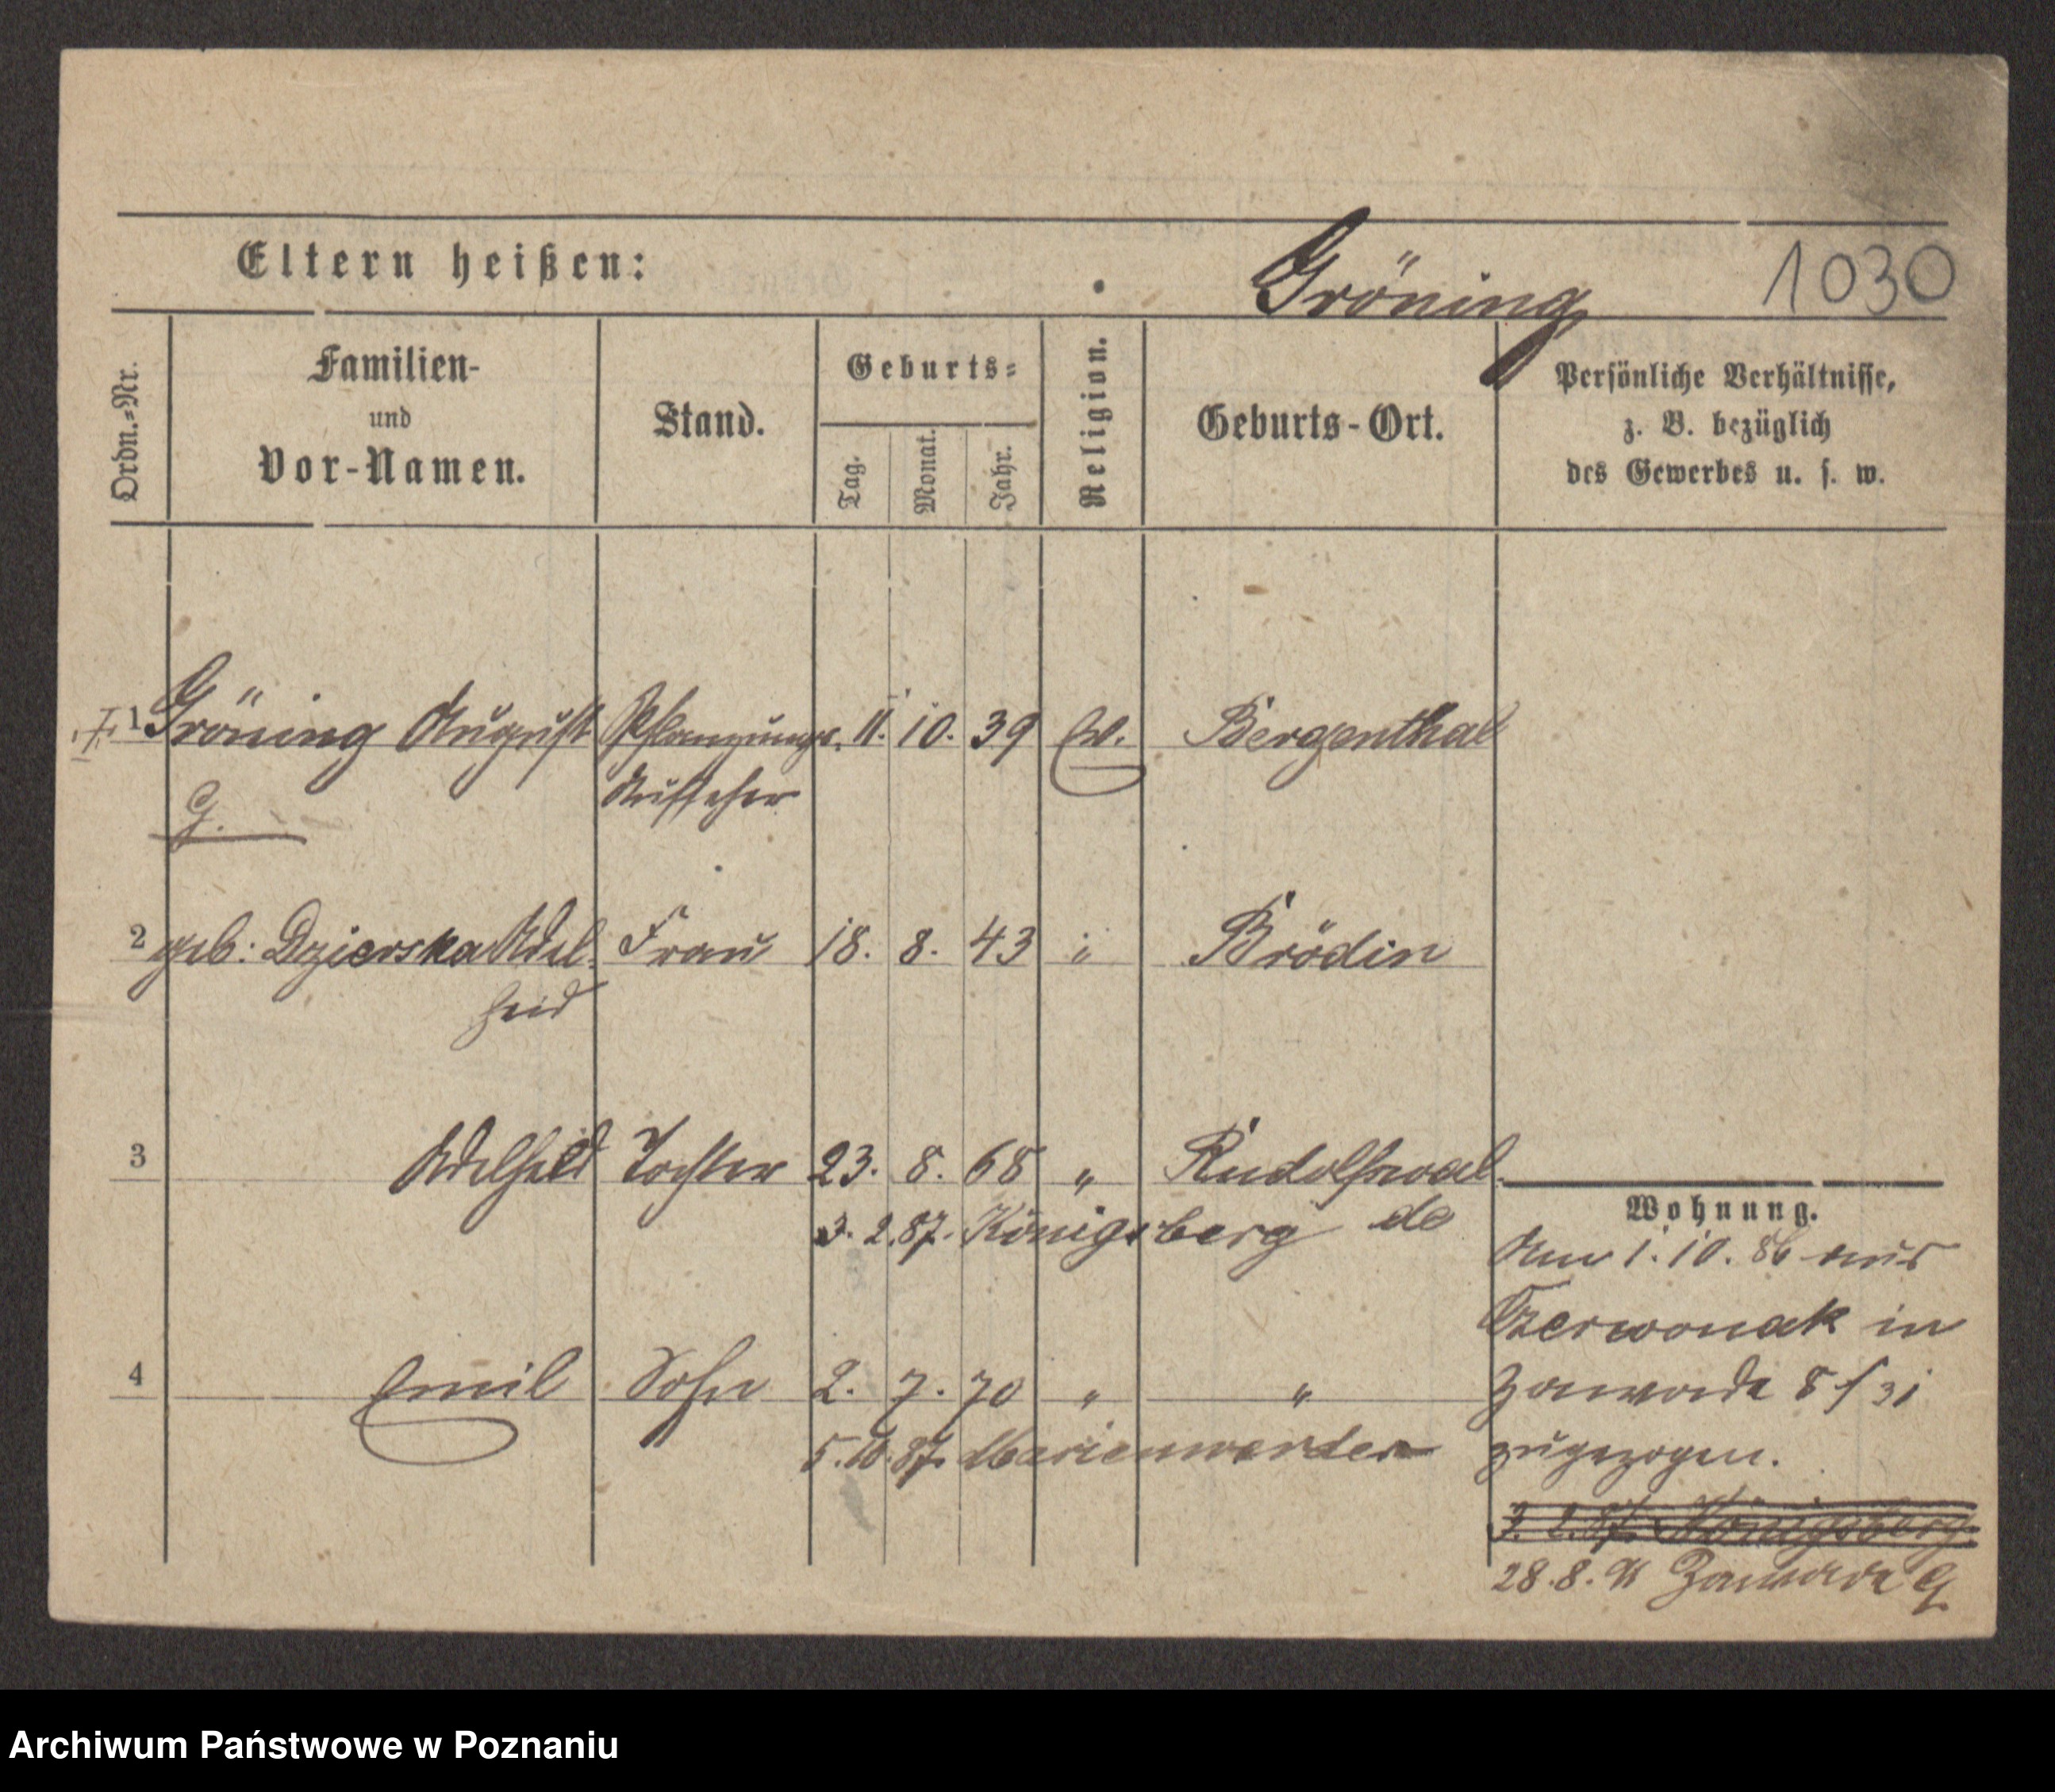 Eltern heißen:
Gröning 1030
Ordn.=Nr.
Familien-
und
Vor-Namen.
Stand.
Geburts=
Tag.
Monat.
Jahr.
Religion.
Geburts-Ort.
Persönliche Verhältnisse,
z. B. bezüglich
des Gewerbes u. s. w.
1 Gröning August Pflanzungs. 11. 10. 39 Ev. Bergenthal
G. Aufseher
2 geb: Dzierska Adel- Frau 18. 8. 43 " Brödin
heid
3 Adelheid Tochter 23. 8. 68 " Rudolfswal-
3. 2. 87. Königsberg de
4 Emil Sohn 2. 7. 70 " "
5. 10. 87. Marienwerder
Wohnung.
Am 1. 10. 86 aus
Czerwonak in
Zawade 8/31
zugezogen.
3. 2. 87. Königsberg
28. 8. Zawade G